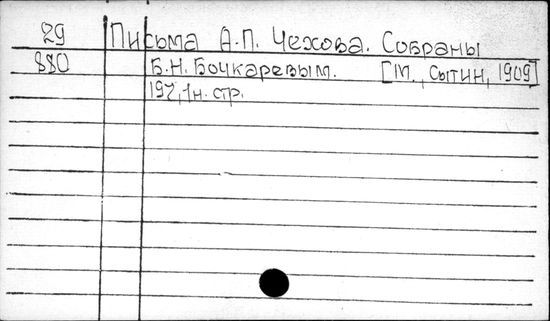 29 Письма А.П. Чехова. Собраны
880 Б.Н. Бочкаревым. [М., Сытин, 1909]
197, 1н. стр.